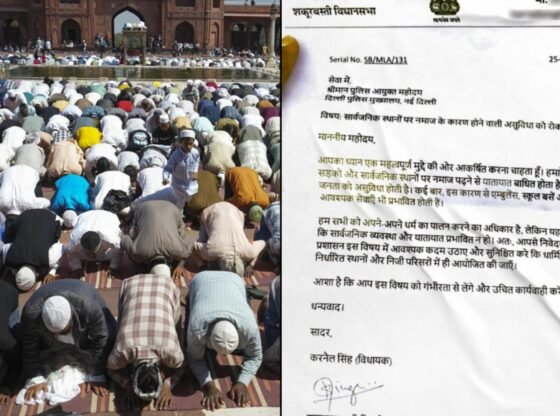 शकूरबस्ती विधानसभा
सत्यमेव जयते
Serial No. SB/MLA/131
25-
सेवा में,
श्रीमान पुलिस आयुक्त महोदय
दिल्ली पुलिस मुख्यालय, नई दिल्ली
विषय: सार्वजनिक स्थानों पर नमाज के कारण होने वाली असुविधा को रोक
माननीय महोदय,
आपका ध्यान एक महत्वपूर्ण मुद्दे की ओर आकर्षित करना चाहता हूँ। हमा
सड़कों और सार्वजनिक स्थानों पर नमाज पढ़ने से यातायात बाधित होता
जनता को असुविधा होती है। कई बार, इस कारण से एम्बुलेंस, स्कूल बसें
आवश्यक सेवाएँ भी प्रभावित होती हैं।
हम सभी को अपने-अपने धर्म का पालन करने का अधिकार है, लेकिन यह
कि सार्वजनिक व्यवस्था और यातायात प्रभावित न हो। अतः, आपसे निवेद
प्रशासन इस विषय में आवश्यक कदम उठाए और सुनिश्चित करे कि धार्मि
निर्धारित स्थानों और निजी परिसरों में ही आयोजित की जाएँ।
आशा है कि आप इस विषय को गंभीरता से लेंगे और उचित कार्यवाही करे
धन्यवाद।
सादर,
करनैल सिंह (विधायक)